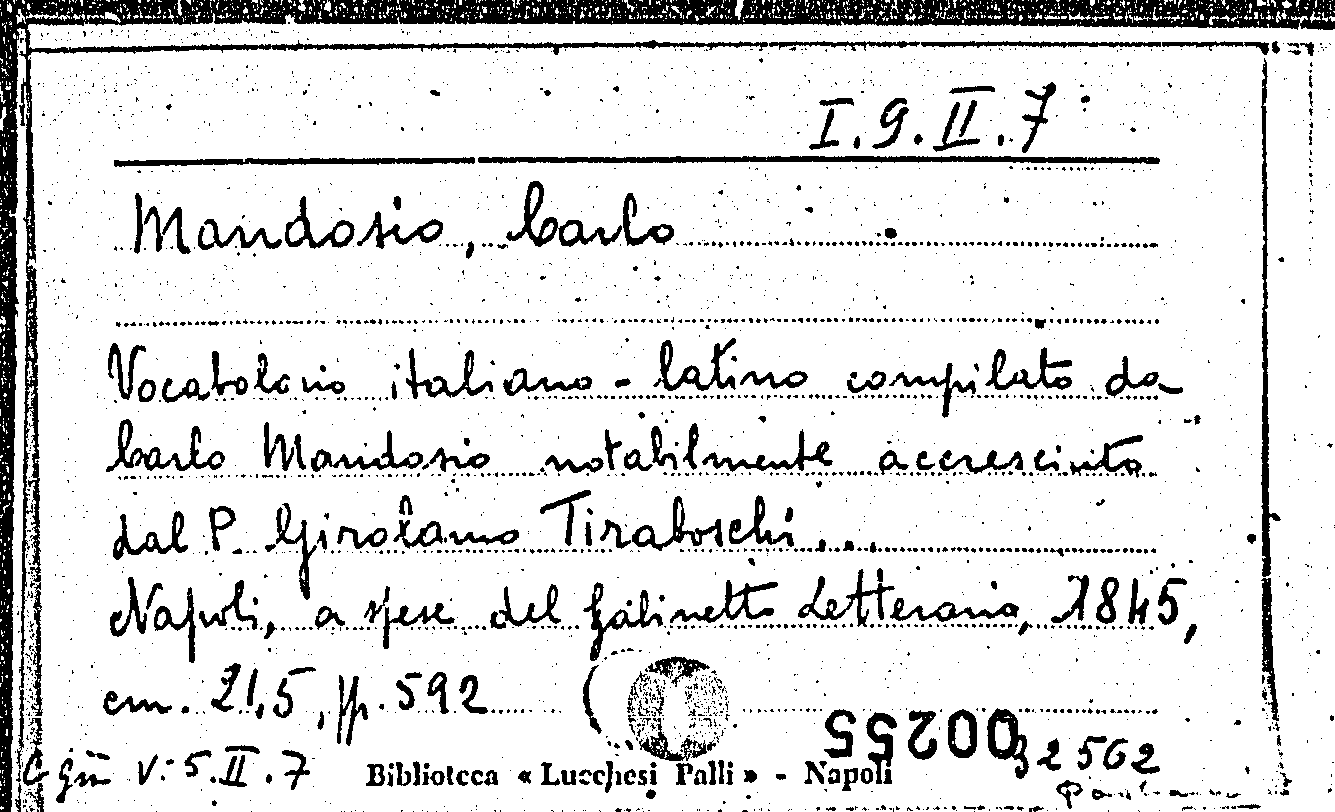 I.9.II.7
Mandosio, Carlo
Vocabolario italiano-latino compilato da
Carlo Mandosio notabilmente accresciuto
dal P. Girolamo Tiraboschi...
Napoli, a spese del Gabinetto Letterario, 1845,
cm. 21,5, pp. 592
00255
32562
V: 5.II.7
Biblioteca « Lucchesi Palli » - Napoli